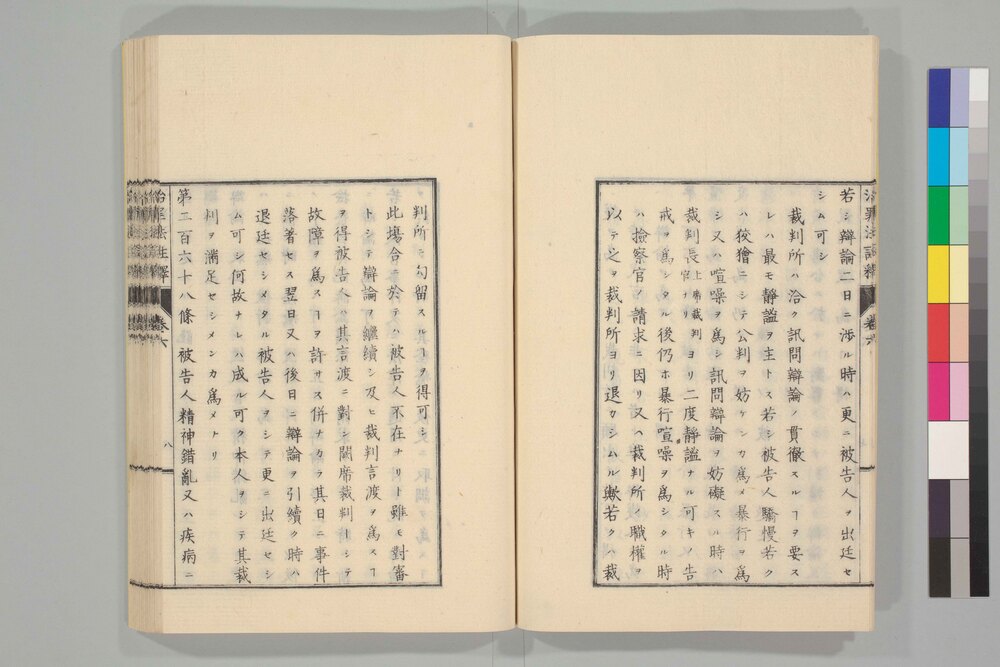 若シ辯論二日ニ渉ル時ハ更ニ被告人ヲ出廷セ
シム可シ
裁判所ハ洽ク訊問辯論ノ貫徹スルヿヲ要ス
レハ最モ靜謐ヲ主トス若シ被告人驕慢若ク
ハ狡獪ニシテ公判ヲ妨ケンカ爲メ暴行ヲ爲
シ又ハ喧噪ヲ爲シ訊問辯論ヲ妨礙スル時ハ
裁判長上席裁判官ナリヨリ二度靜謐ナル可キノ告
戒ヲ爲シタル後仍ホ暴行喧噪ヲ爲シタル時
ハ撿察官ノ請求ニ因リ又ハ裁判所ノ職權ヲ
以テ之ヲ裁判所ヨリ退カシムル歟若クハ裁
判所ニ勾留スルヿヲ得可シ
此塲合ニ於テハ被告人不在ナリト雖モ對審
トシテ辯論ヲ繼續シ及ヒ裁判言渡ヲ爲スヿ
ヲ得被告人ハ其言渡ニ對シ闕席裁判トシテ
故障ヲ爲スヿヲ許サス併ナカラ其日ニ事件
落着セス翌日又ハ後日ニ辯論ヲ引續ク時ハ
退廷セシメタル被告人ヲシテ更ニ出廷セシ
ム可シ何故ナレハ成ル可ク本人ヲシテ其裁
判ヲ滿足セシメンカ爲メナリ
第二百六十八條 被告人精神錯亂又ハ疾病ニ
治罪法註釋 卷六
八